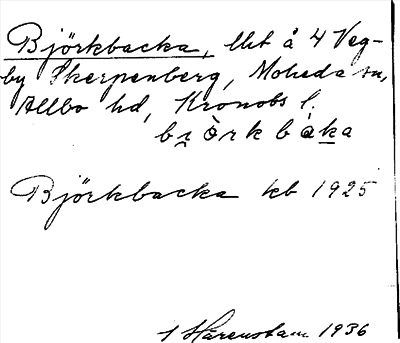 Björkbacka, lht å 4 Veg-
by Skerpenberg, Moheda sn,
Allbo hd, Kronobs l.
bi̯òrkbàka
Björkbacka kb 1925
1 Härenstam 1936